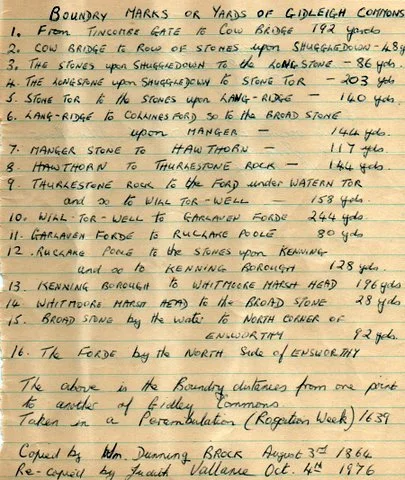 BOUNDRY MARKS OR YARDS OF GIDLEIGH COMMONS
1. FROM TINCOMBE GATE TO COW BRIDGE 192 yards
2. COW BRIDGE TO ROW OF STONES upon SHUGGLEDOWN - 48 y
3. THE STONES upon SHUGGLEDOWN TO THE LONGSTONE - 86 yds.
4. THE LONGSTONE upon SHUGGLEDOWN TO STONE TOR - 203 yds
5. STONE TOR to the STONES upon LANG-RIDGE - 140 yds.
6. LANG-RIDGE to COLLINGSFORD so to the BROAD STONE
upon MANGER - 144 yds.
7. MANGER STONE TO HAWTHORN - 117 yds.
8. HAWTHORN TO THURLESTONE ROCK - 144 yds.
9. THURLESTONE ROCK to the FORD under WATERN TOR
and so to WILL-TOR-WELL - 158 yds.
10. WILL-TOR-WELL TO GARLAVEN FORDE 244 yds.
11. GARLAVEN FORDE to RUCLAKE POOLE 80 yds
12. RUCLAKE POOLE to the STONES upon KENNING
and so to KENNING BOROUGH 128 yds.
13. KENNING BOROUGH to WHITMOORE MARSH HEAD 196 yds
14. WHITMOORE MARSH HEAD to the BROAD STONE 28 yds
15. BROAD STONE by the WATER to NORTH CORNER OF
ENSWORTHY 92 yds.
16. The FORDE by the NORTH Side of ENSWORTHY
The above is the Boundry distances from one point
to another of Gidley Commons
Taken in a Perambulation (Rogation Week) 1639
Copied by Wm. Dunning BROCK August 3rd 1864
Re-copied by Judith Vallance Oct. 4th 1976